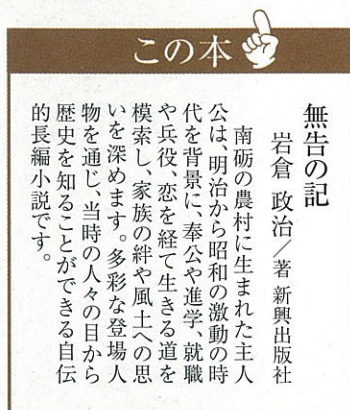 この本
無告の記
岩倉 政治／著 新興出版社
南砺の農村に生まれた主人
公は、明治から昭和の激動の時
代を背景に、奉公や進学、就職
や兵役、恋を経て生きる道を
模索し、家族の絆や風土への思
いを深めます。多彩な登場人
物を通じ、当時の人々の目から
歴史を知ることができる自伝
的長編小説です。